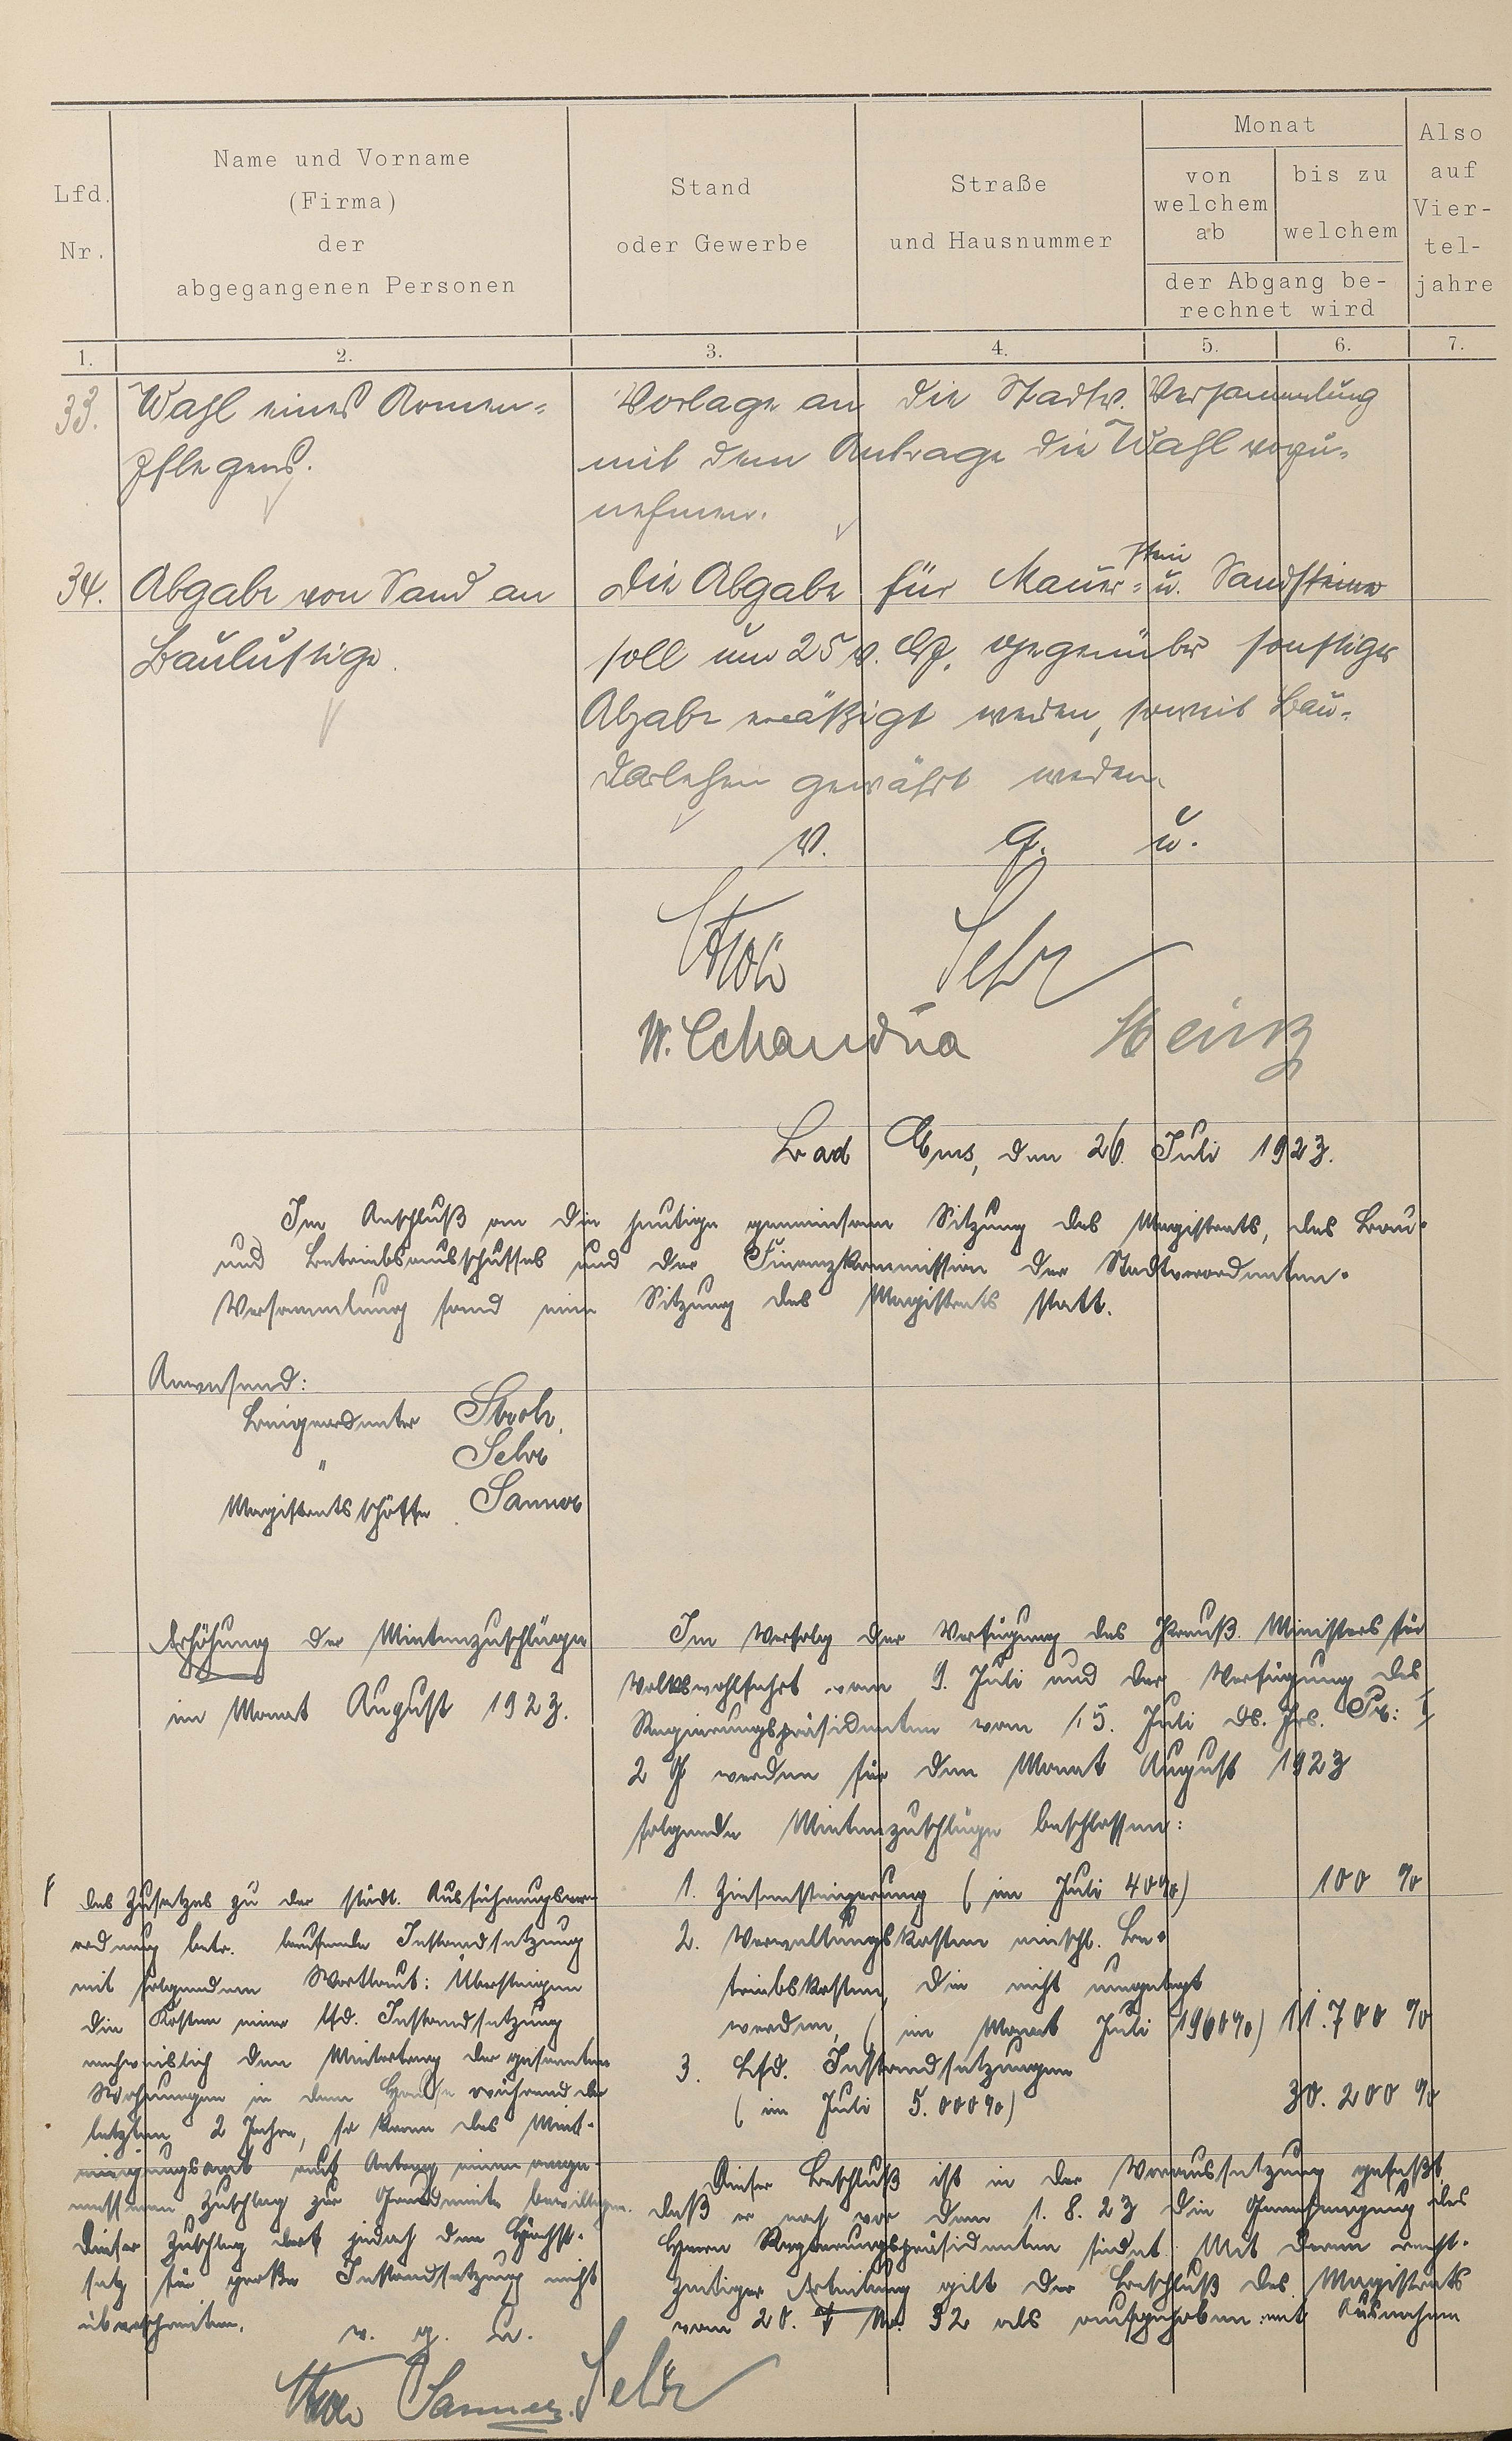 Lfd.
Nr.
Name und Vorname
(Firma)
der
abgegangenen Personen
Stand
oder Gewerbe
Straße
und Hausnummer
Monat
von
welchem
ab
bis zu
welchem
der Abgang be-
rechnet wird
Also
auf
Vier-
tel-
jahre
1. 2. 3. 4. 5. 6. 7.
33. Wahl eines Armen-
pflegers.
Vorlage an die Stadtv. Versammlung
mit dem Antrage die Wahl vorzu-
nehmen.
34. Abgabe von Sand an
Baulustige.
Die Abgabe für Mauer- u. Sandsteine
stein
soll um 25 v. H. gegenüber sonstiger
Abgabe ermäßigt werden, soweit Bau-
darlehen gewährt werden.
v. g. u.
Stroh Selr
W. Schandua Heintz
Bad Ems, den 26. Juli 1923.
Im Anschluß an die heutige gemeinsame Sitzung des Magistrats, des Bau-
und Betriebsausschusses und der Finanzkommission der Stadtverordneten-
Versammlung fand eine Sitzung des Magistrats statt.
Anwesend:
Beigeordneter Stroh.
" Selr
Magistratsschöffe Sanner
Erhöhung der Mietenzuschläge
im Monat August 1923.
Im Verfolg der Verfügung des Preuß. Ministers für
Volkswohlfahrt vom 9. Juli und der Verfügung des
Regierungspräsidenten vom 15. Juli ds. Jrs. Pr: I
2 J werden für den Monat August 1923
folgende Mietenzuschläge beschlossen:
1. Zinsensteigerung (im Juli 40%) 100 %
2. Verwaltungskosten einschl. Be-
triebskosten, die nicht umgelegt
werden, (im Monat Juli 1960%) 11.700 %
3. Lfd. Instandsetzungen
(im Juli 5.000%) 30.200 %
Dieser Beschluß ist in der Voraussetzung gefaßt,
daß er noch vor dem 1.8.23 die Genehmigung des
Herrn Regierungspräsidenten findet. Mit deren recht-
zeitiger Erteilung gilt der Beschluß des Magistrats
vom 20. 7 Nr. 32 als aufgehoben mit Ausnahme
des Zusatzes zu der städt. Ausführungsver-
ordnung betr. laufende Instandsetzung
mit folgendem Wortlaut: Übersteigen
die Kosten einer lfd. Instandsetzung
nachweislich den Mietertrag der gesamten
Wohnungen in dem Hause während der
letzten 2 Jahre, so kann das Miet-
einigungsamt auf Antrag einen ange-
messenen Zuschlag zur Grundmiete bewilligen.
Dieser Zuschlag darf jedoch den Höchst-
satz für große Instandsetzung nicht
überschreiten.
v. g. u.
Stroh Sanner. Selr